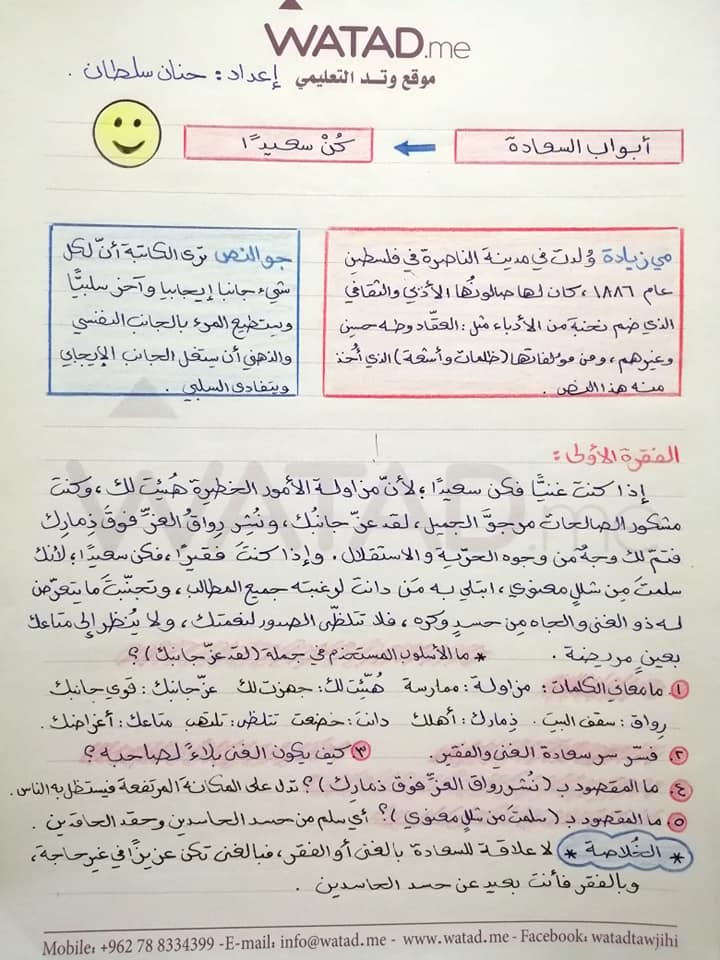 WATAD.me
موقع وتد التعليمي إعداد: حنان سلطان.
أبواب السعادة
كُنْ سعيدًا
مي زيادة وُلدت في مدينة الناصرة في فلسطين
عام ١٨٨٦، كان لها صالونُها الأدبي والثقافي
الذي ضم نخبة من الأدباء مثل: العقّاد وطه حسين
وغيرهم، ومن مؤلفاتها (ظلمات وأشعة) الذي أُخذ
منه هذا النص.
جو النص ترى الكاتبة أنّ لكل
شيء جانبا إيجابيا وآخر سلبيًّا
ويستطيع المرء بالجانب النفسي
والذهني أن يستغل الجانب الإيجابي
ويتفادى السلبي.
الفقرة الأولى:
إذا كنت غنيًّا فكن سعيدًا؛ لأنّ مزاولة الأمور الخطيرة هُيّئت لك، وكنت
مشكور الصالحات مرجوّ الجميل، لقد عزّ جانبُك، ونُشِر رِواقُ العزِّ فوقَ ذِمارِك
فتمّ لك وجهٌ من وجوه الحرّية والاستقلال. وإذا كنتَ فقيرًا، فكن سعيدًا؛ لأنك
سلمتَ مِن شللٍ معنوي، ابتلي به مَن دانت لرغبته جميع المطالب، وتجنّبتَ ما يتعرّض
له ذو الغنى والجاه من حسدٍ وكره، فلا تتلظّى الصدور لنعمتك، ولا يُنظر إلى متاعك
بعينٍ مريضة. * ما الأسلوب المستخدم في جملة (لقد عزّ جانبك)؟
١. ما معاني الكلمات: مزاولة: ممارسة هُيّئت لك: جهزت لك عزّ جانبك: قوي جانبك
رواق: سقف البيت. ذِمارك: أهلك دانت: خضعت تتلظى: تلتهب متاعك: أغراضك.
٢. فسّر سر سعادة الغني والفقير. ٣. كيف يكون الغنى بلاءً لصاحبه؟
٤. ما المقصود ب (نُشر رواق العزِّ فوق ذمارِك)؟ تدل على المكانة المرتفعة فيستظل به الناس.
٥. ما المقصود ب (سلمتَ من شللٍ معنوي)؟ أي سلم من حسد الحاسدين وحقد الحاقدين.
* الخُلاصة * لا علاقة للسعادة بالغنى أو الفقر، فبالغنى تكن عزيزًا في غير حاجة،
وبالفقر فأنت بعيد عن حسد الحاسدين.
Mobile: +962 78 8334399 -E-mail: info@watad.me - www.watad.me - Facebook: watadtawjihi